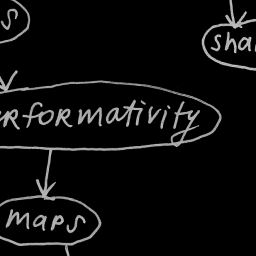 s
sha
erformativity
maps